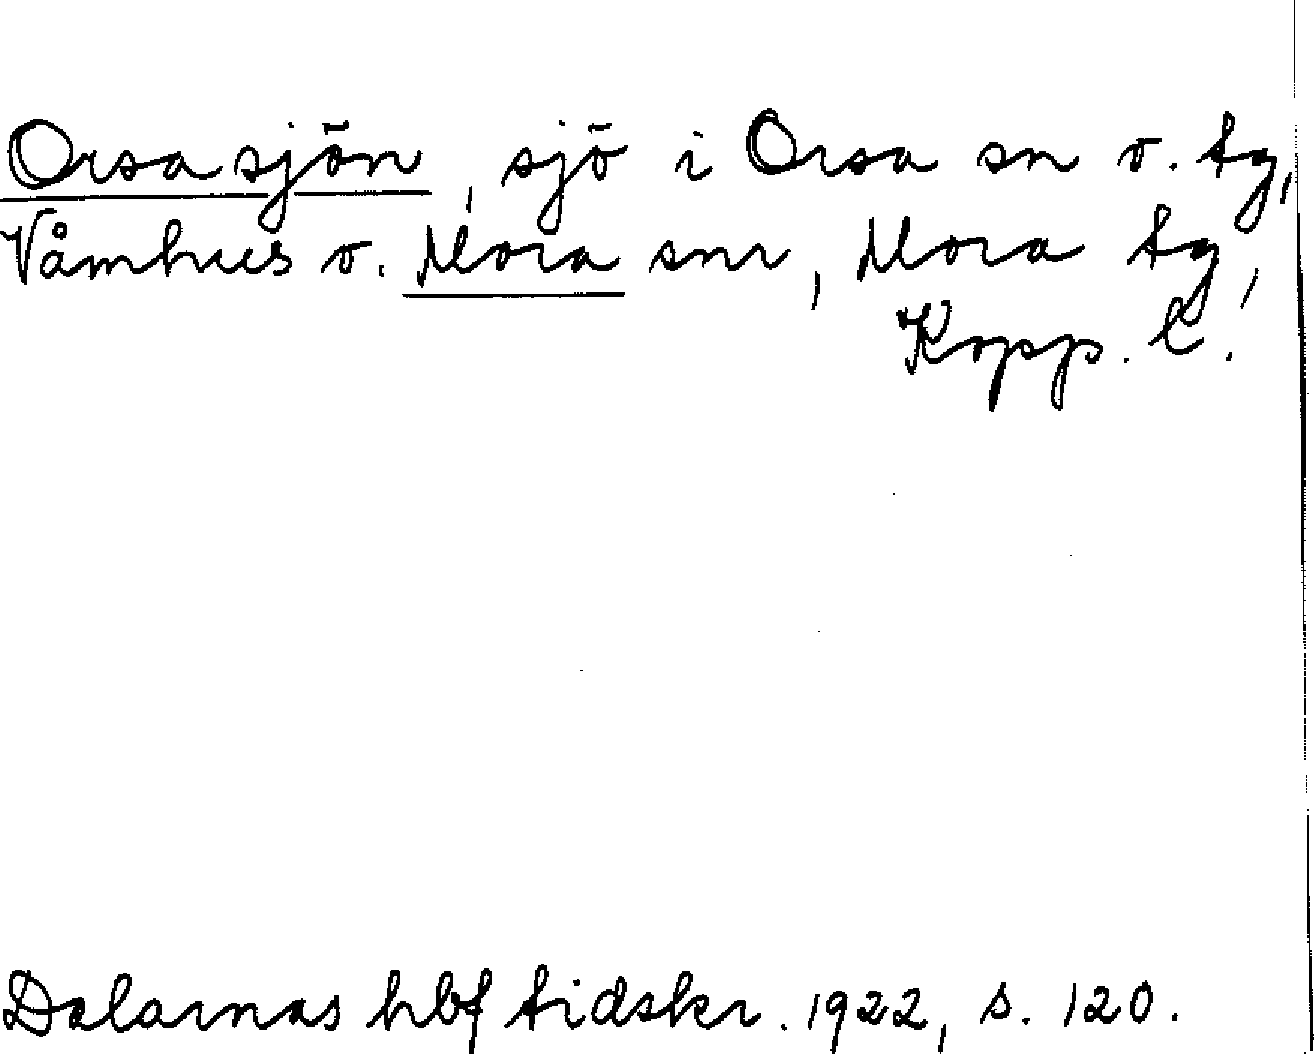 Orsasjön, sjö i Orsa sn o. tg,
Våmhus o. Mora snr, Mora tg,
Kopp. l.
Dalarnas hbf tidskr. 1922, s. 120.